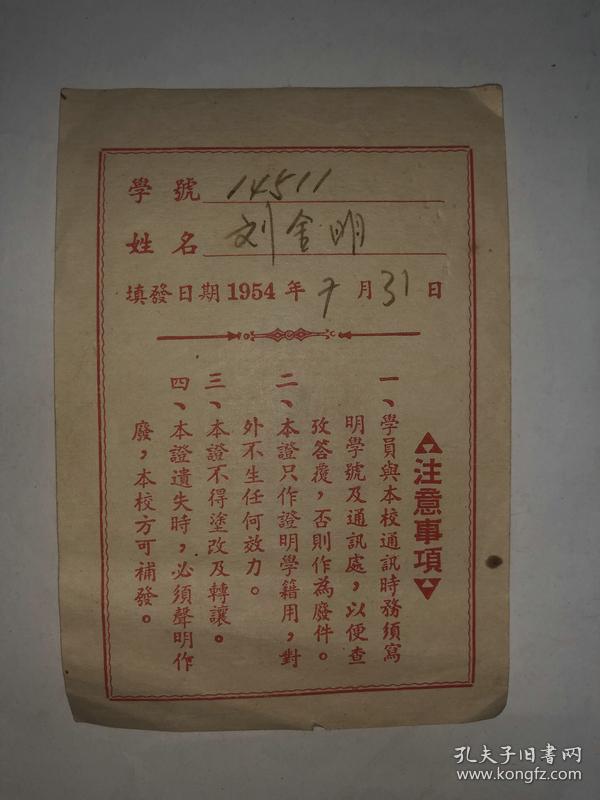 學號 14511
姓名 刘舍明
填發日期1954年7月31日
▲注意事項▼
一、學員與本校通訊時務須寫
明學號及通訊處，以便查
攷答覆，否則作為廢件。
二、本證只作證明學籍用，對
外不生任何效力。
三、本證不得塗改及轉讓。
四、本證遺失時，必須聲明作
廢，本校方可補發。
孔夫子旧书网
www.kongfz.com